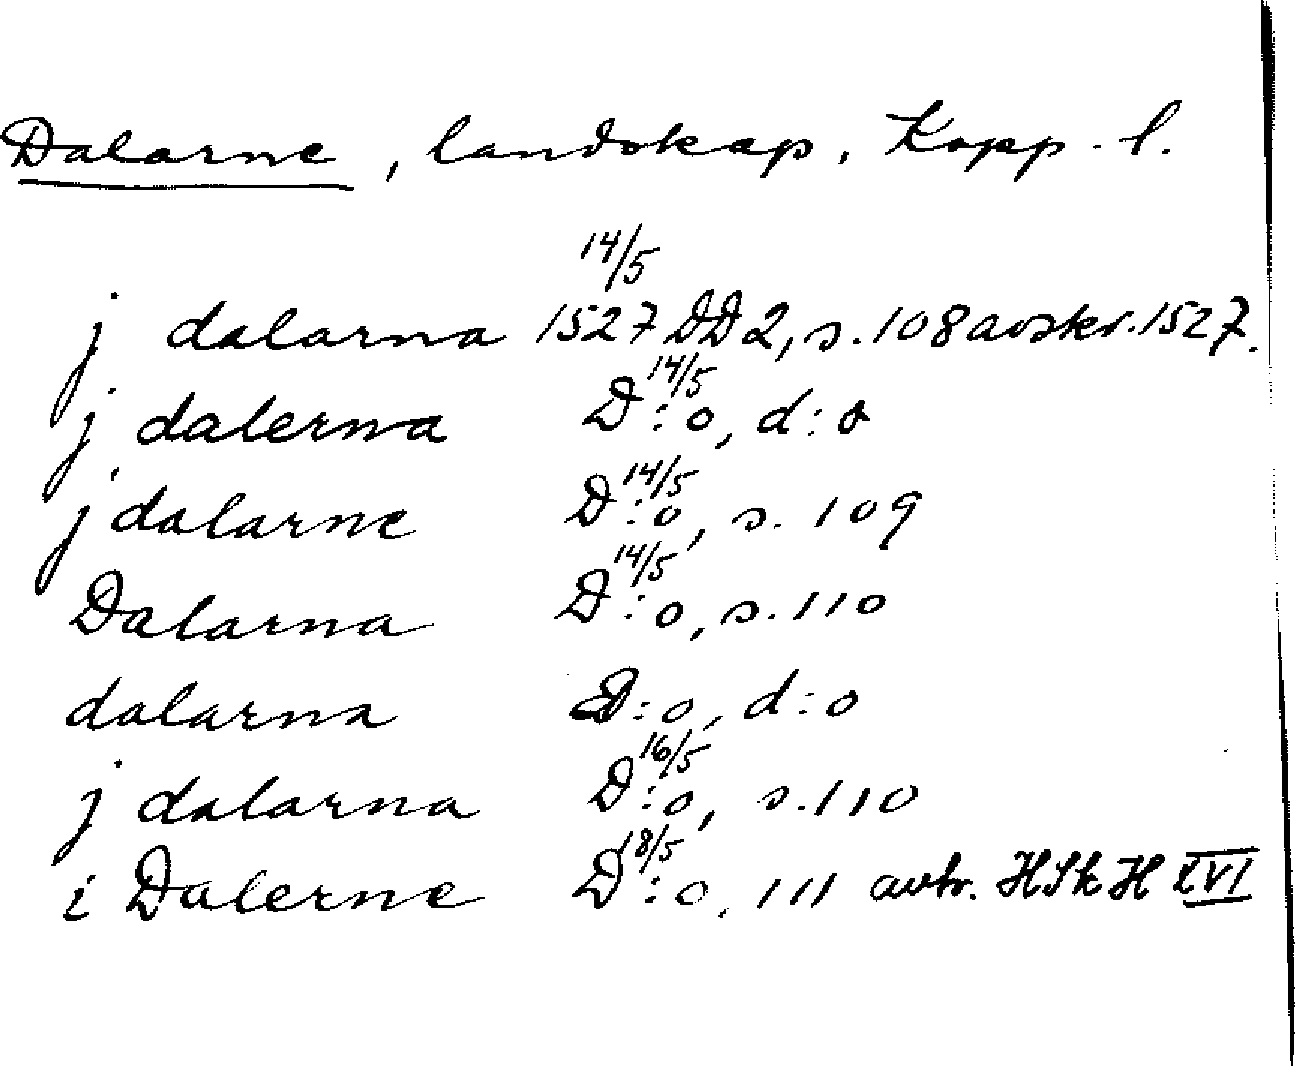 Dalarne, landskap, Kopp. l.
j dalarna 14/5 1527 DD2, s. 108 avskr. 1527.
j dalerna D:o 14/5, d:o
j dalarne D:o 14/5, s. 109
Dalarna D:o 14/5, s. 110
dalarna D:o, d:o
j dalarna D:o 16/5, s. 110
i Dalerne D:o 18/5, 111 avtr. HSkH XVI